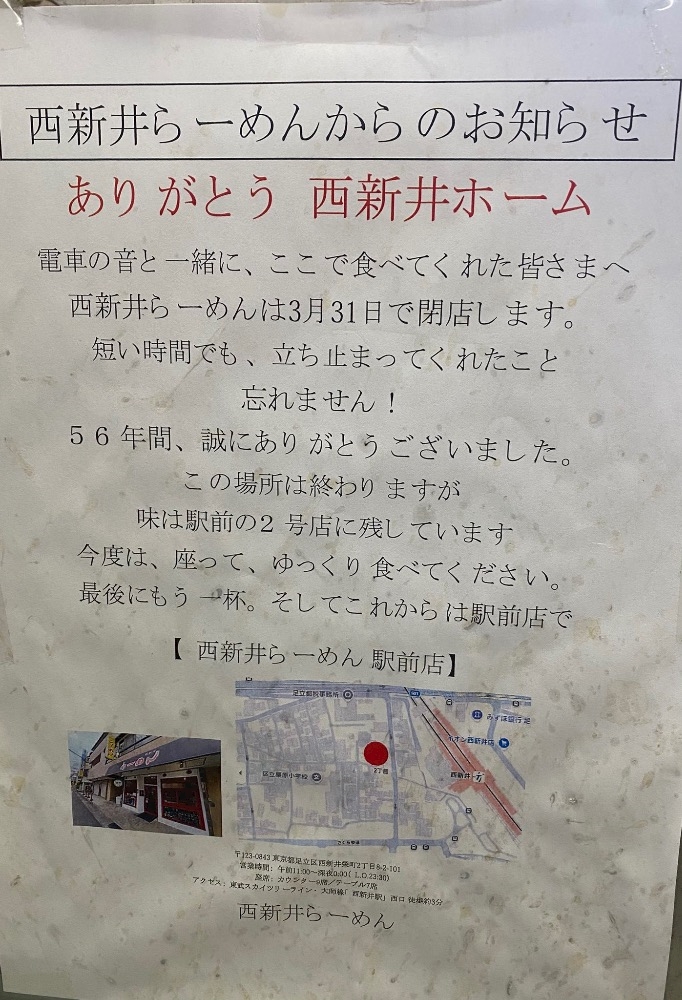 西新井らーめんからのお知らせ
ありがとう 西新井ホーム
電車の音と一緒に、ここで食べてくれた皆さまへ
西新井らーめんは3月31日で閉店します。
短い時間でも、立ち止まってくれたこと
忘れません！
５６年間、誠にありがとうございました。
この場所は終わりますが
味は駅前の２号店に残しています
今度は、座って、ゆっくり食べてください。
最後にもう一杯。そしてこれからは駅前店で
【 西新井らーめん 駅前店】
足立都税事務所
みずほ銀行 足
イオン西新井店
区立栗原小学校
2丁目
西新井
さくら参道
〒123-0843 東京都足立区西新井栄町2丁目8-2-101
営業時間： 午前11:00～深夜0:00( L.O.23:30)
座席： カウンター9席／テーブル7席
アクセス： 東武スカイツリーライン・大師線「西新井駅」西口 徒歩約3分
西新井らーめん